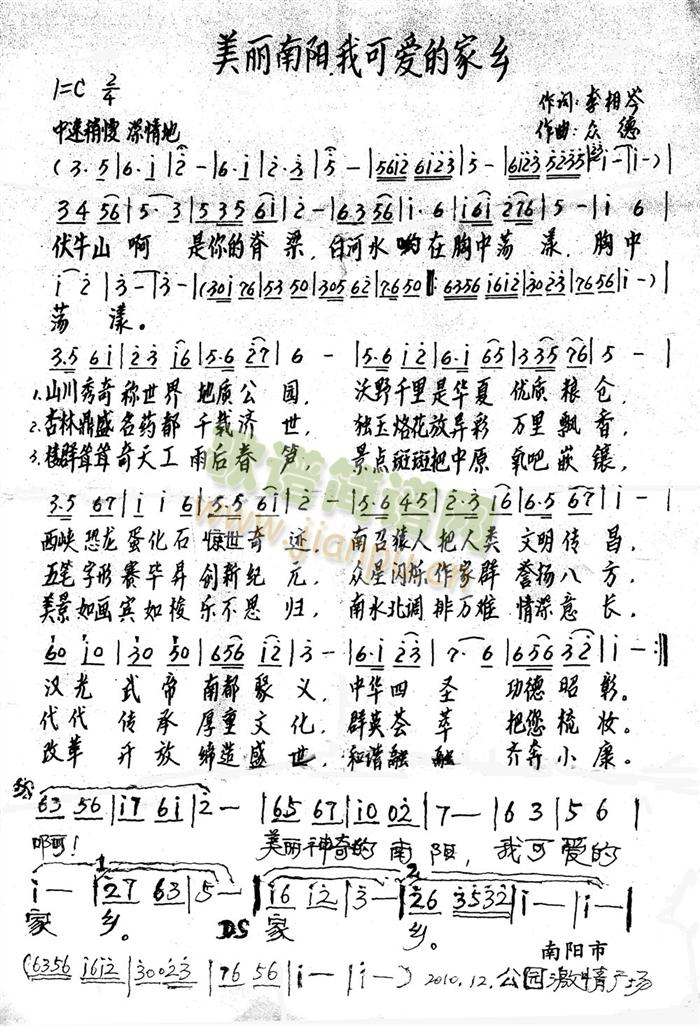 美丽南阳,我可爱的家乡
1=C 2/4
作词:李相岑
中速稍慢 深情地
作曲:众 德
(3·5|6·i|2-|6·i|2·3|5-|
3 4 56|5·3|5 35 6i|2-|6·3 56|i·6|i6i 276|5-|i 6
伏牛山 啊 是你的脊 梁,白河水 哟在胸中荡 漾,胸中
i 2|3-|3-|
荡 漾。
3·5 6i|23 i6|5·6 27|6-|5·6 i2|6·i 65|335 76|5-|
1.山川秀奇称世界 地质公 园, 沃野千里是华夏 优质粮仓,
2.杏林鼎盛名药都 千载济 世, 独玉烙花放异彩 万里飘香,
3.楼群茸茸奇天工 雨后春 笋, 景点斑斑把中原 氧吧嵌镶,
3·5 67|i i 6|5·5 6i|2-|5·6 45|2·3 i6|6·5 67|i-|
西峡恐龙蛋化石 惊世奇 迹, 南召猿人把人类 文明传昌,
五笔字形赛毕昇 创新纪 元, 众星闪烁作家群 誉扬八方,
美景如画宾如梭 乐不思 归, 南水北调排万难 情深意长,
60 i0|30 50|656 i2|3-|6·i 23|7·6|656 32|i-:|
汉光武帝南都聚义,中华四圣 功德昭彰。
代代传承厚重文化,群英荟萃 把您梳妆。
改革开放缔造盛世,和谐融融 齐奔小康。
63 56|i7 6i|2-|65 67|i0 02|7-|6 3|5 6|
啊! 美丽神奇的南阳,我可爱的
1. 2.
i-|27 63|5-|i6 i2|3-|26 3532|i-|
家 乡。 D.S 家 乡。
南阳市
(6356 i6i2|30023|76 56|i-|i-) 2010.12.公园激情广场
歌谱简谱网
www.jianpu.cn